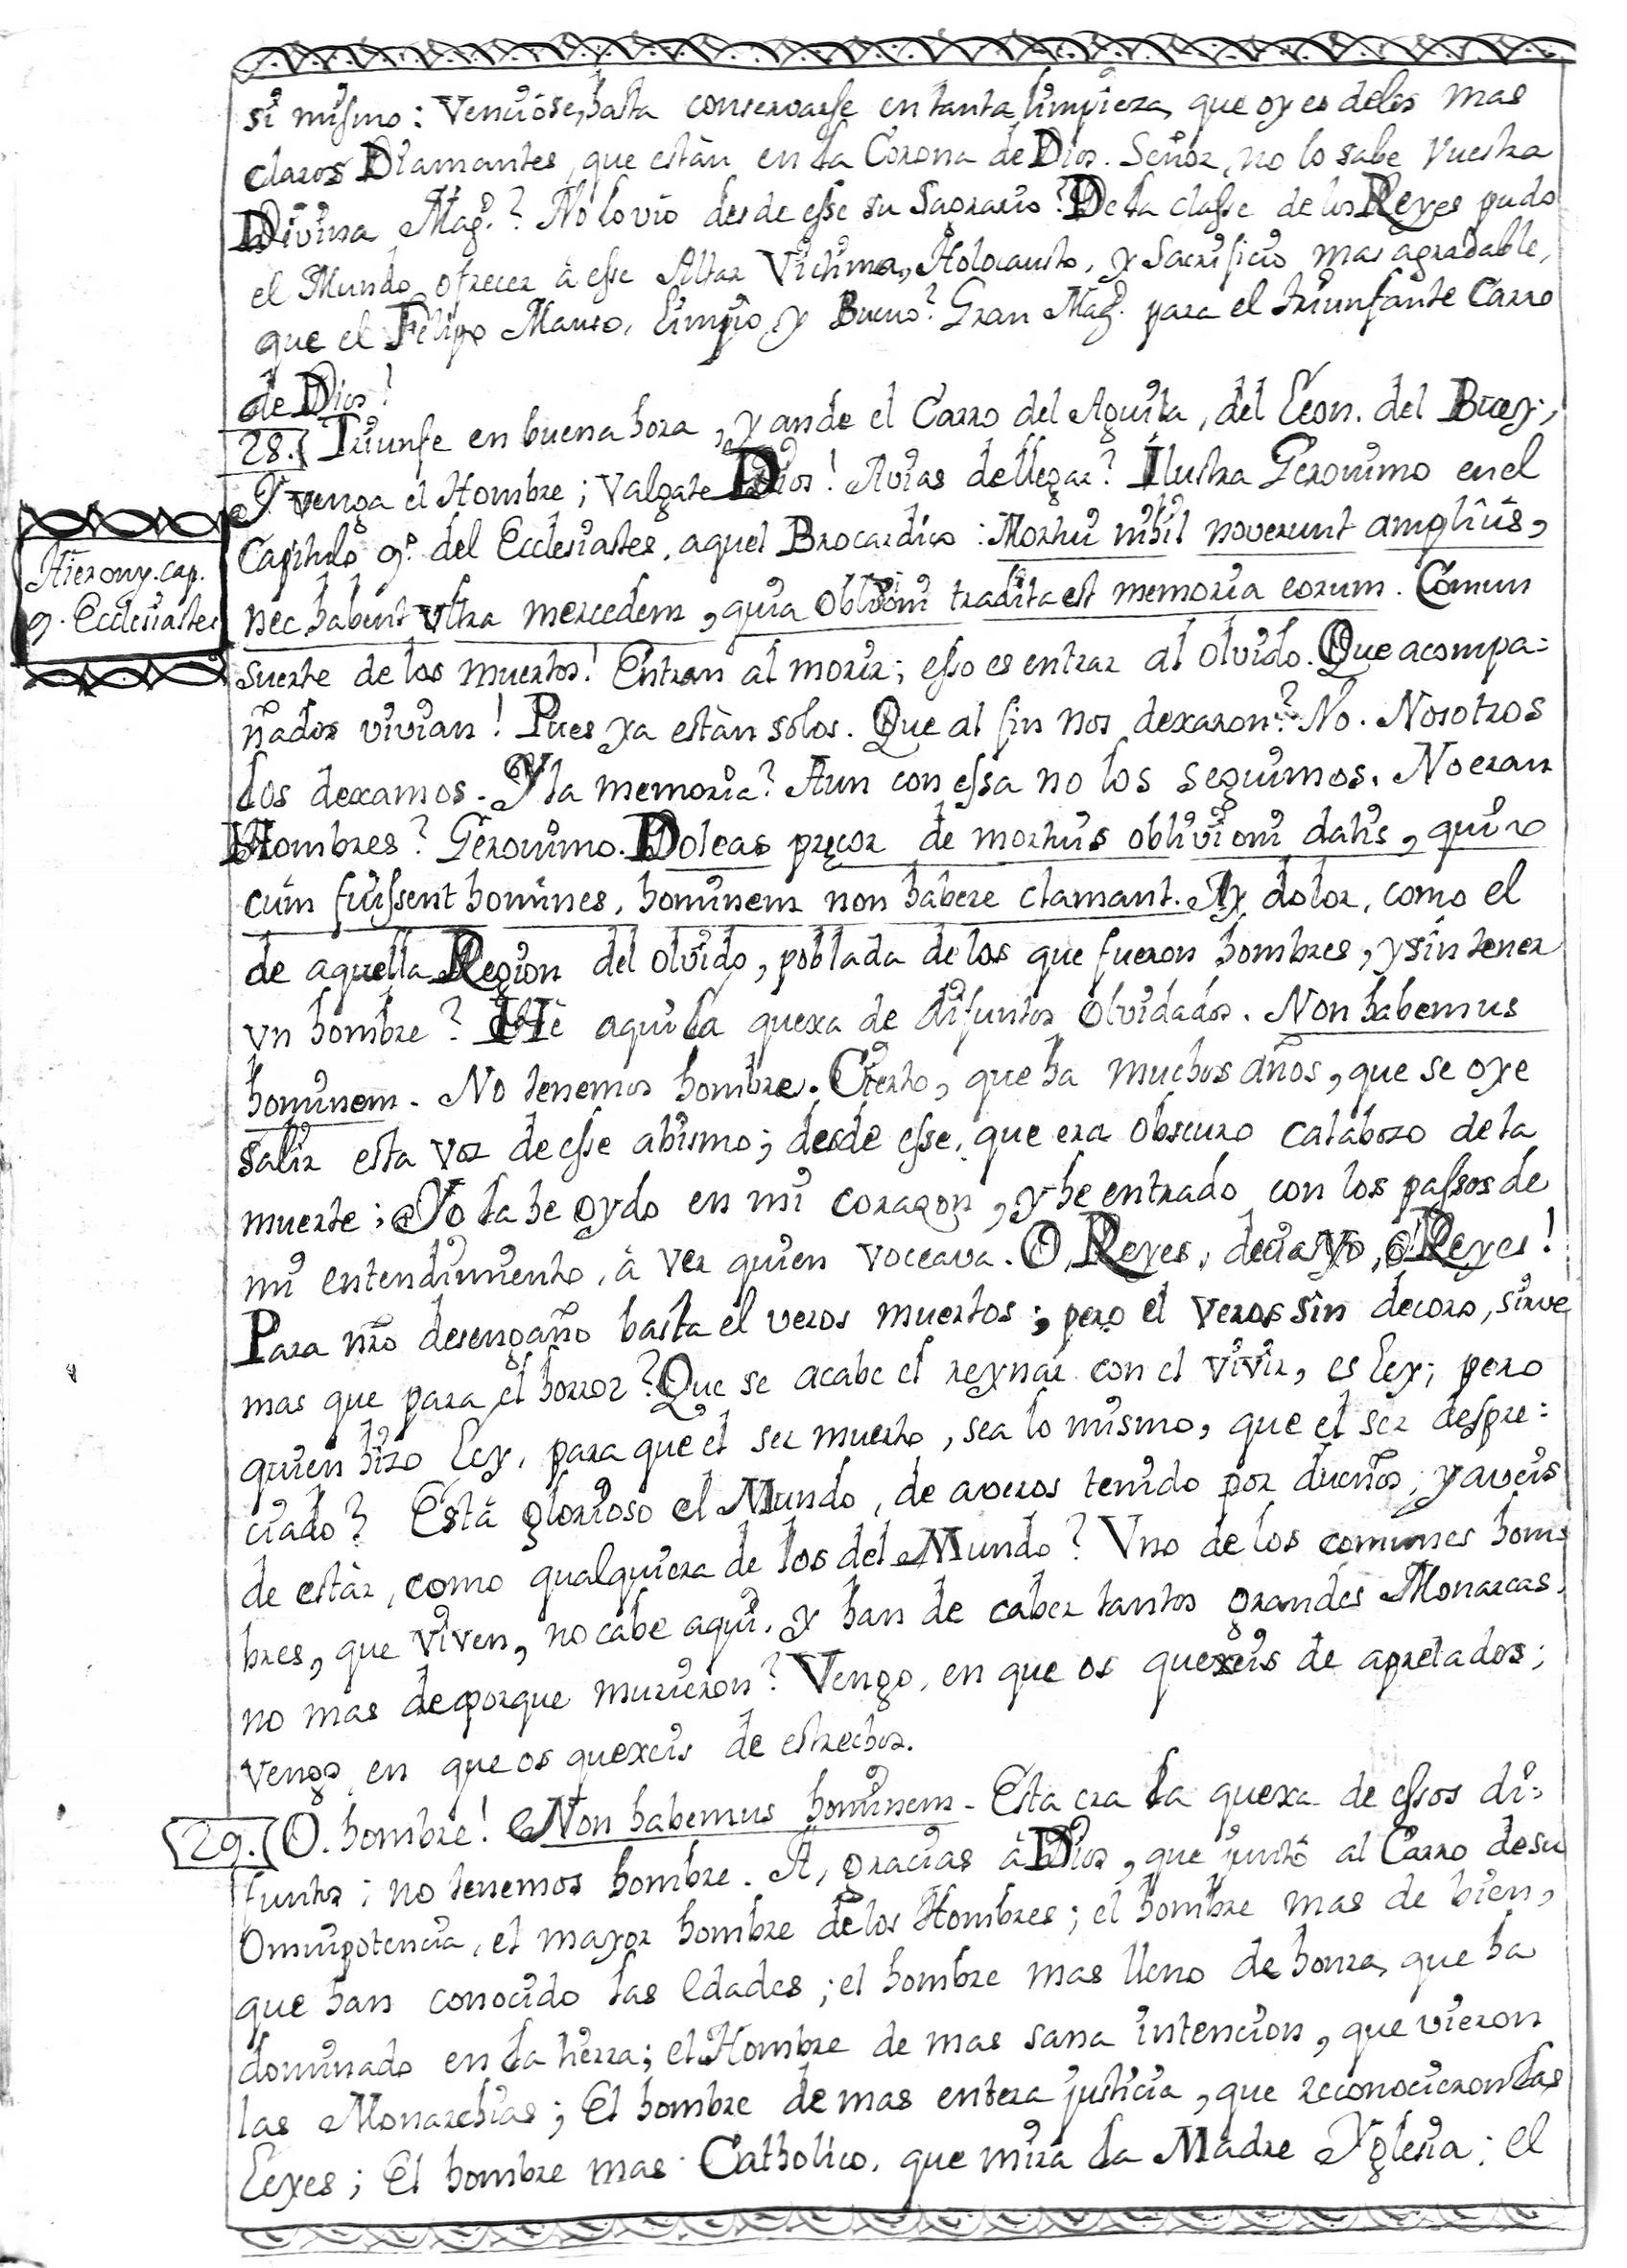 si mismo: Venciòse, hasta conservarse en tanta limpieza, que oy es delos mas
claros Diamantes, que estàn en la Corona de Dios. Señor, no lo sabe Vuestra
Divina Mag.? No lo vio desde esse su Sagrario? De la classe de los Reyes pudo
el Mundo ofrecer à esse Altar Victima, Holocausto, y Sacrificio mas agradable,
que el Felipo Manso, Limpio, y Bueno? Gran Mag. para el triunfante Carro
de Dios!
28. Triunfe en buena hora, y ande el Carro del Aguila, del Leon. del Buey;
Y venga el Hombre; Valgate Dios! Avias de llegar? Ilustra Geronimo en el
Capitulo 9.º del Ecclesiastes, aquel Brocardico: Mortui nihil noverunt ampliùs,
Hierony. cap.
9. Ecclesiastes
nec habent vltra mercedem, quia oblivioni tradita est memoria eorum. Comun
suerte de los muertos! Entran al morir; esso es entrar al olvido. Que acompa=
ñados vivian! Pues ya estàn sólos. Que al fin nos dexaron? No. Nosotros
los dexamos. Y la memoria? Aun con essa no los seguimos. No eran
Hombres? Geronimo. Doleas precor de mortuis oblivioni datis, qui
cùm fuissent homines, hominem non habere clamant. Ay dolor, como el
de aquella Region del olvido, poblada de los que fueron hombres, y sin tener
vn hombre? Hè aqui la quexa de difuntos olvidados. Non habemus
hominem. No tenemos hombre. Cierto, que ha muchos años, que se oye
salir esta voz de esse abismo; desde esse, que era obscuro calabozo de la
muerte; Yo la he oydo en mi corazon, y he entrado con los passos de
mi entendimiento, à ver quien voceava. O, Reyes, decia yo, o Reyes!
Para nr̃o desengaño basta el veros muertos; pero el veros sin decoro, sirve
mas que para el horror? Que se acabe el reynar con el vivir, es Ley; pero
quien hizo Ley, para que el ser muerto, sea lo mismo, que el ser despre=
ciado? Està glorioso el Mundo, de averos tenido por dueños; y aveis
de estàr, como qualquiera de los del Mundo? Vno de los comunes hom=
bres, que viven, no cabe aqui, y han de caber tantos grandes Monarcas,
no mas de porque murieron? Vengo, en que os quexeis de apretados;
Vengo en que os quexeis de estrechos.
29. O. hombre! Non habemus hominem. Esta era la quexa de essos di=
funtos; no tenemos hombre. A, gracias à Dios, que juntò al Carro de su
Omnipotencia, el mayor hombre de los Hombres; el hombre mas de bien,
que han conocido las edades; el hombre mas lleno de honra, que ha
dominado en la tierra; el Hombre de mas sana intencion, que vieron
las Monarchias; El hombre de mas entera justicia, que reconocieron las
Leyes; El hombre mas Catholico, que mira la Madre Yglesia; el